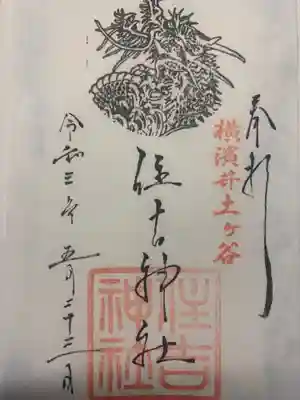 奉拝
横濱井土ヶ谷
住吉神社
住吉
神社
令和三年 五月二十二日